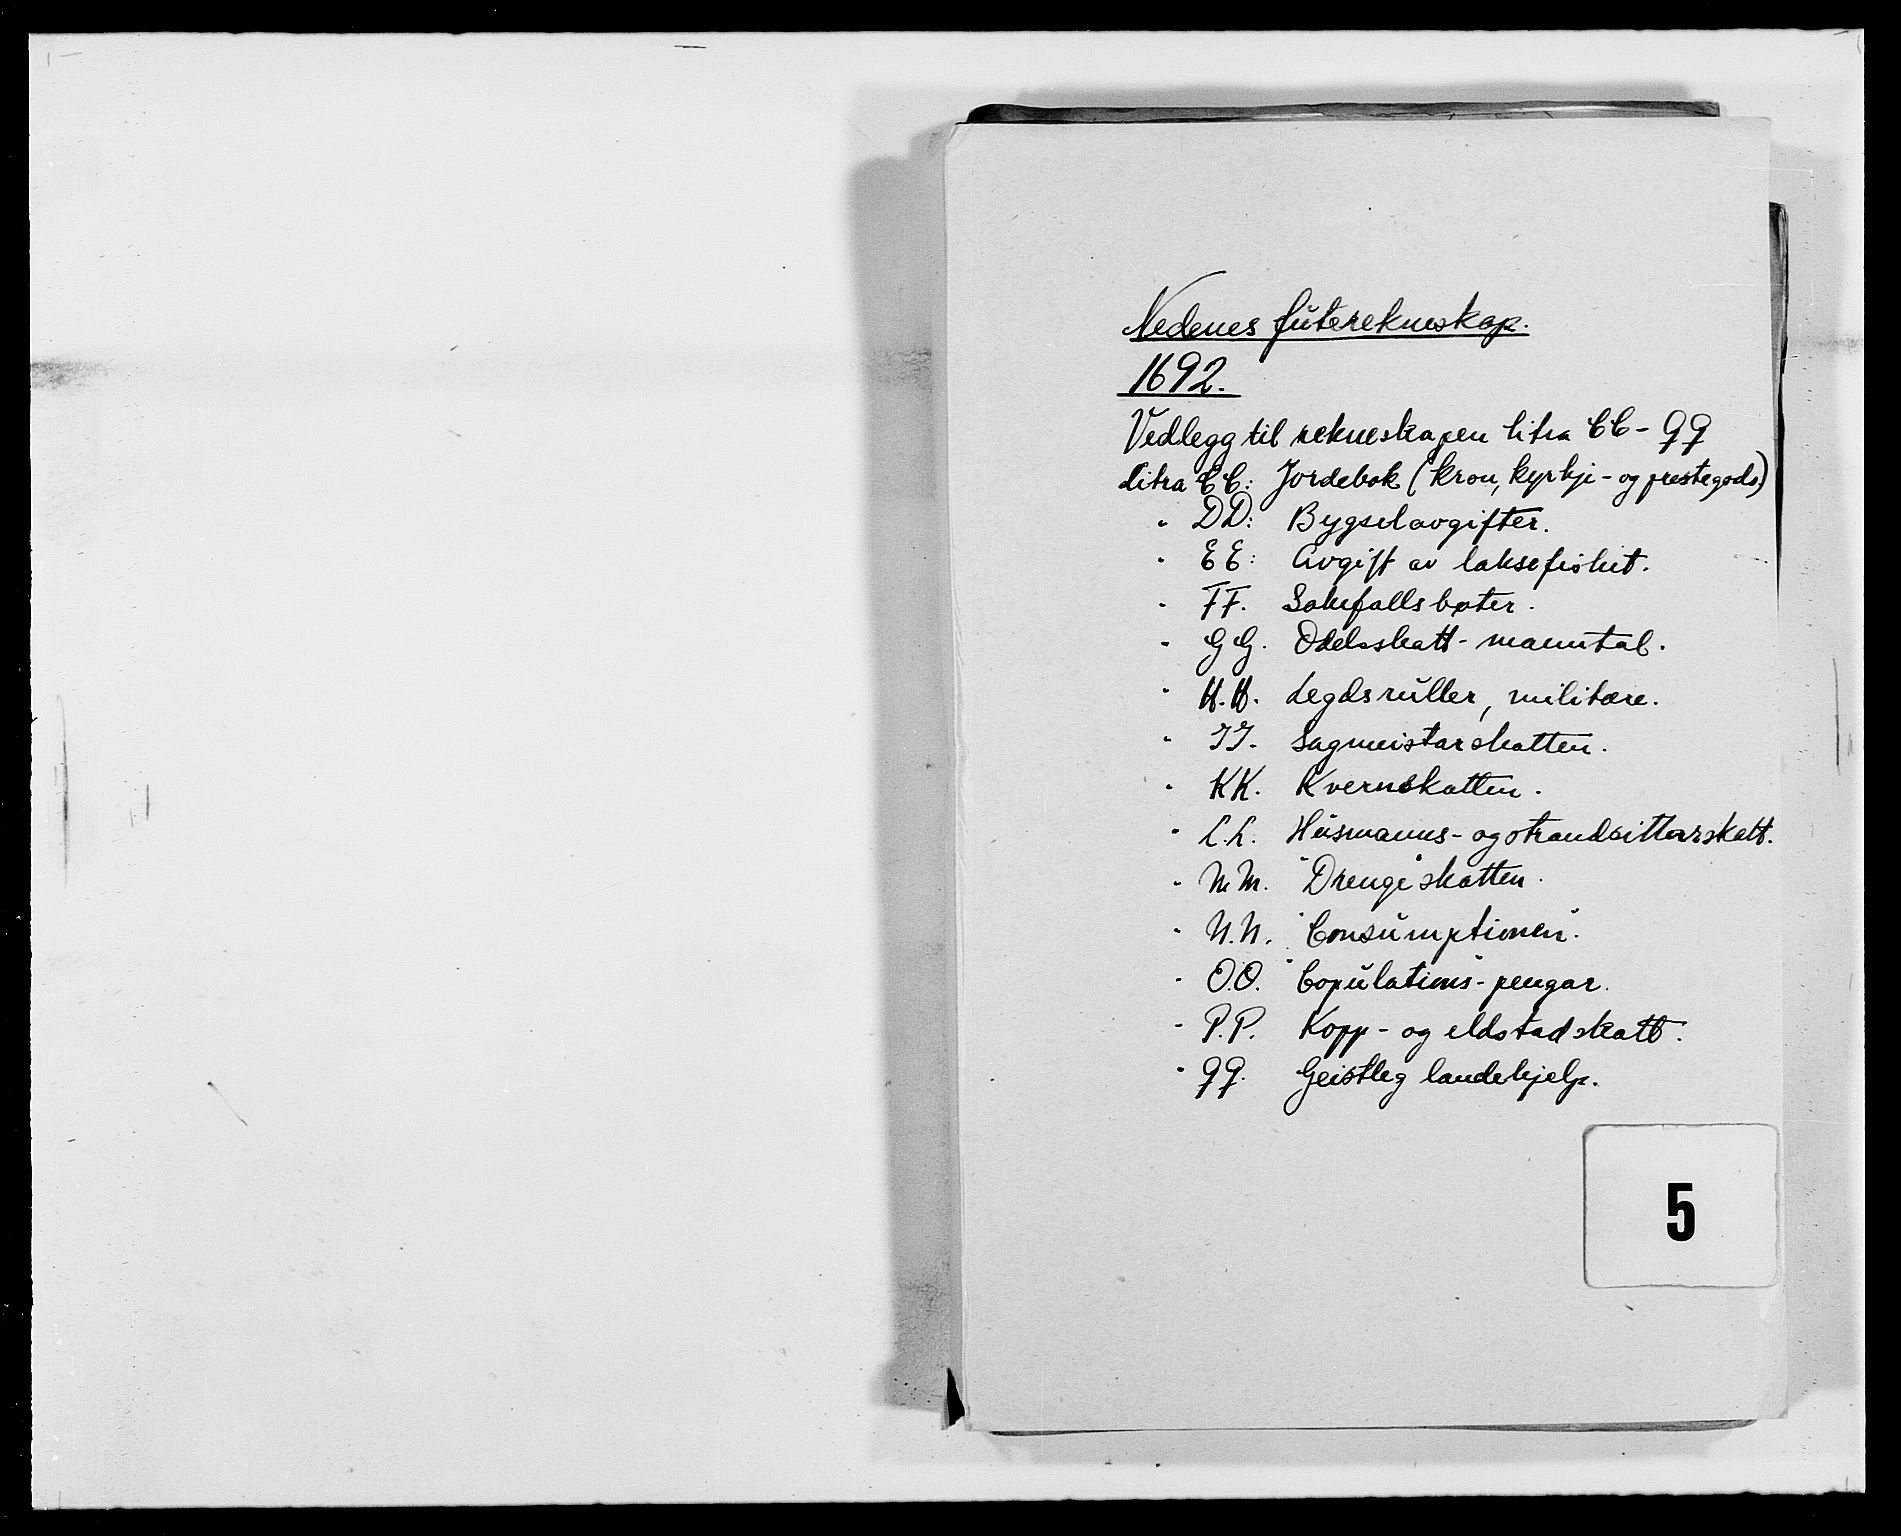 Nedenes futerekneskap.
1692.
Vedlegg til rekneskapen litra CC - QQ
Litra CC: Jordebok (kron, kyrkje- og prestegods.)
" DD: Bygselavgifter.
" EE: Avgift av laksefisket.
" FF. Sakefallsbøter.
" GG. Odelsskatt-manntal.
" H.H. Legdsruller, militære.
" JJ. Sagmeistarskatten.
" KK. Kvernskatten.
" L.L. Husmanns- og strandsittarskatt.
" M.M. "Drenge"skatten.
" N.N. "Consumptionen".
" O.O. "Copulations"-pengar.
" P.P. Kopp- og eldstadskatt.
" QQ. Geistleg landehjelp.
5